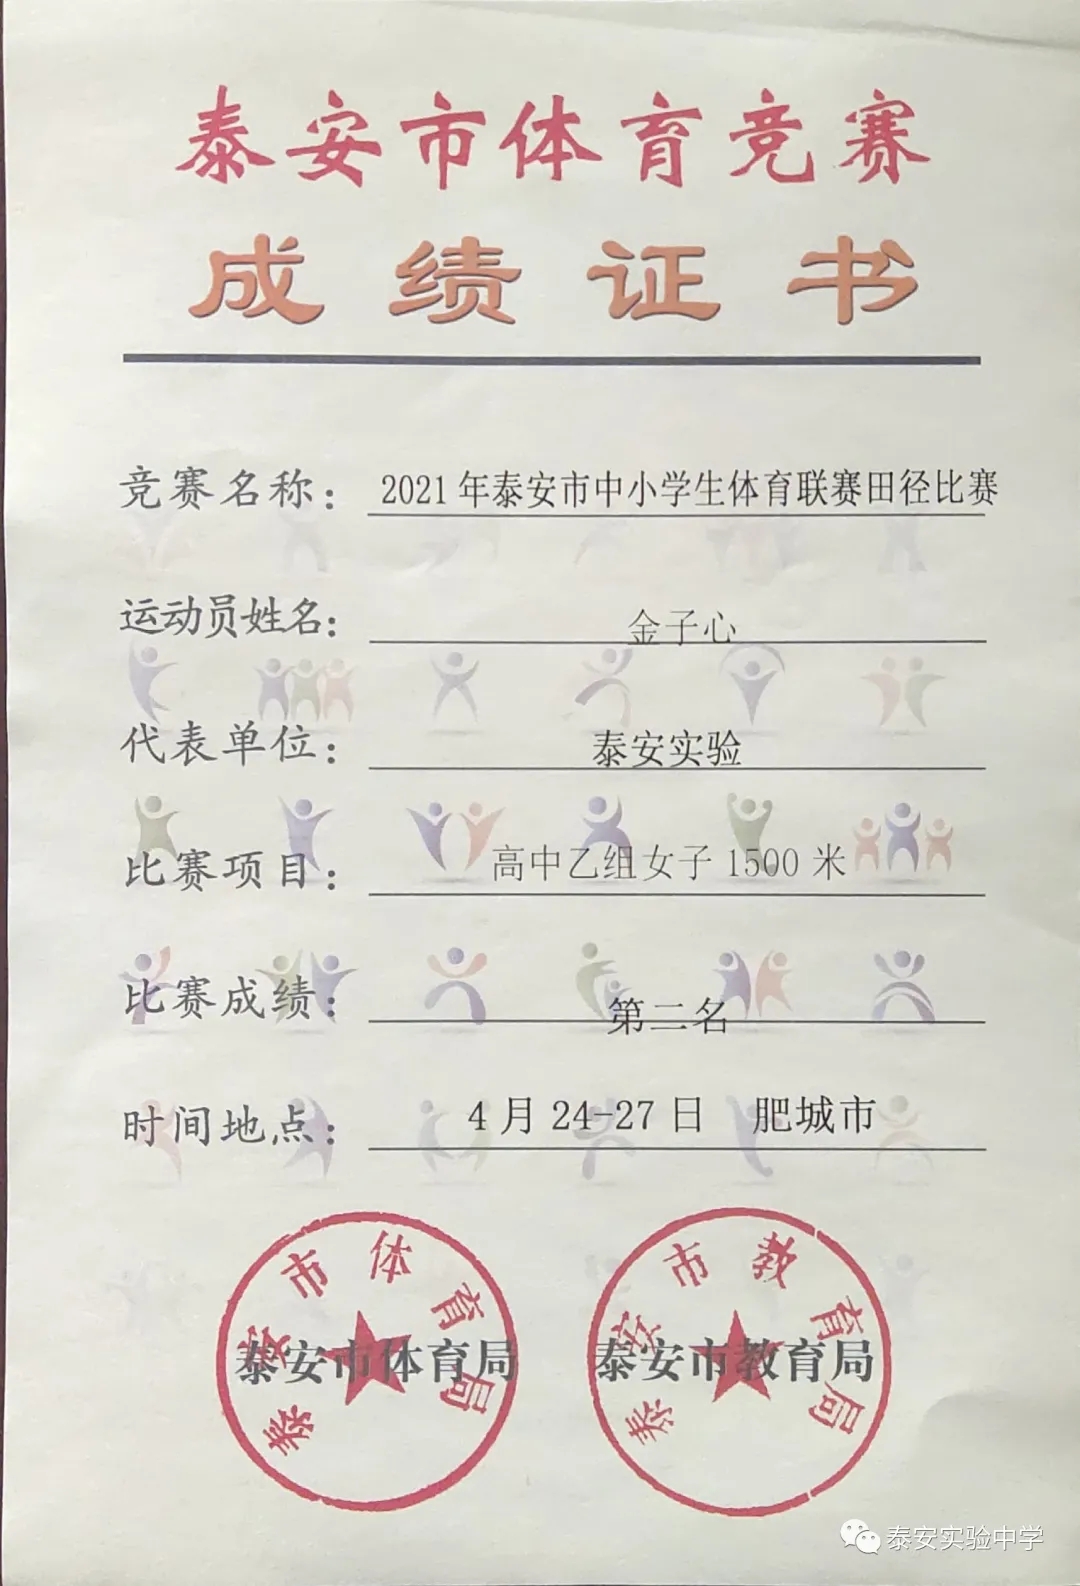 泰安市体育竞赛
成绩证书
竞赛名称： 2021年泰安市中小学生体育联赛田径比赛
运动员姓名： 金子心
代表单位： 泰安实验
比赛项目： 高中乙组女子1500米
比赛成绩： 第二名
时间地点： 4月24-27日 肥城市
泰安市体育局
泰安市体育局
泰安市教育局
泰安市教育局
泰安实验中学